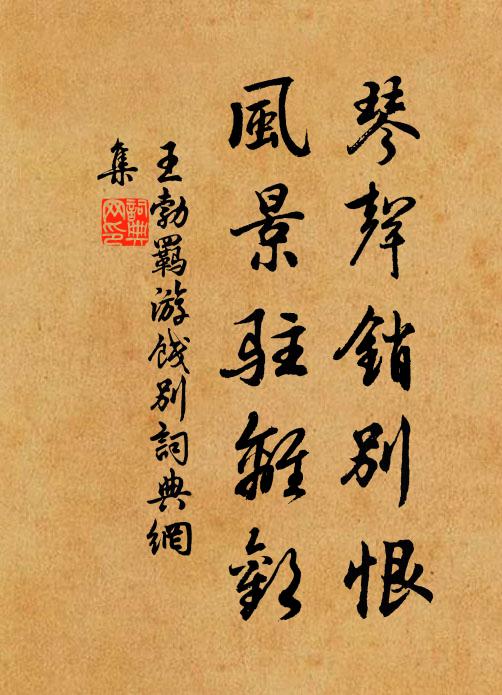 琴聲銷別恨
風景駐離歡
王勃羇游餞別詞典網
集
詞典網印